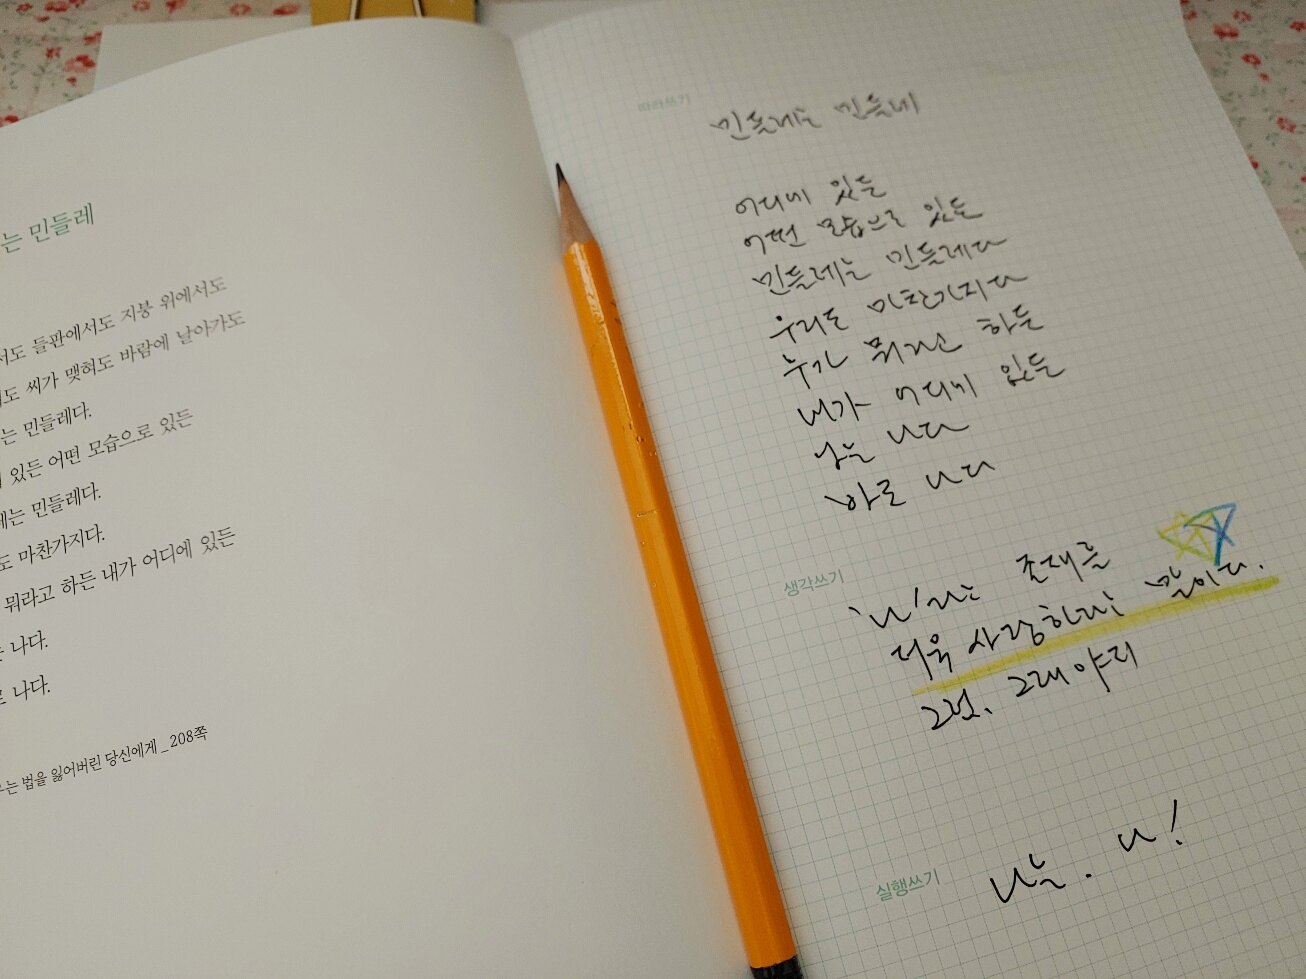 는 민들레
서도 들판에서도 지붕 위에서도
도 씨가 맺혀도 바람에 날아가도
는 민들레다.
있든 어떤 모습으로 있든
레는 민들레다.
도 마찬가지다.
뭐라고 하든 내가 어디에 있든
나다.
나다.
는 법을 잃어버린 당신에게 _208쪽
따라쓰기
민들레는 민들레
어디에 있든
어떤 모습으로 있든
민들레는 민들레다
우리도 마찬가지다
누가 뭐라고 하든
내가 어디에 있든
나는 나다
바로 나다
생각쓰기
'나'라는 존재를
더욱 사랑하라는 말이다.
그럼, 그래야지
실행쓰기
나는. 나!